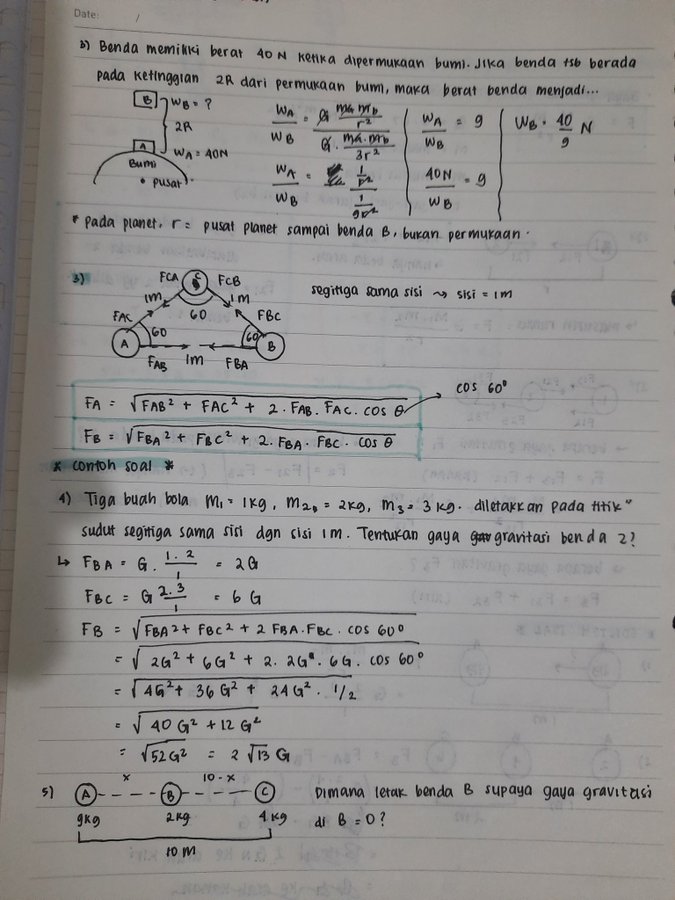 Date: /
3) Benda memiliki berat 40 N ketika dipermukaan bumi. Jika benda tsb berada
pada ketinggian 2R dari permukaan bumi, maka berat benda menjadi...
B WB = ?
2R
A WA = 40N
Bumi
• pusat
WA/WB = (G ma.mb/r²)/(G. ma.mb/3r²)
WA/WB = (1/r²)/(1/9r²)
WA/WB = 9
40N/WB = 9
WB = 40/9 N
* pada planet, r = pusat planet sampai benda B, bukan permukaan.
3)
FCA C FCB
1m 1m
60
FAC FBC
A 60 60 B
FAB 1m FBA
segitiga sama sisi ⤳ sisi = 1m
FA = √FAB² + FAC² + 2. FAB. FAC. cos θ → cos 60°
FB = √FBA² + FBC² + 2. FBA. FBC. cos θ
* contoh soal *
4) Tiga buah bola m₁ = 1kg, m₂ = 2kg, m₃ = 3 kg. diletakkan pada titik"
sudut segitiga sama sisi dgn sisi 1m. Tentukan gaya gravitasi benda 2?
↳ FBA = G . 1.2/1 = 2G
FBC = G 2.3/1 = 6 G
FB = √FBA² + FBC² + 2 FBA. FBC. cos 60°
= √2G² + 6G² + 2. 2G. 6G. cos 60°
= √4G² + 36 G² + 24G² . 1/2
= √40 G² + 12 G²
= √52G² = 2 √13 G
5) A --- x --- B --- 10-x --- C Dimana letak benda B supaya gaya gravitasi
9kg 2kg 4kg di B = 0?
10 M